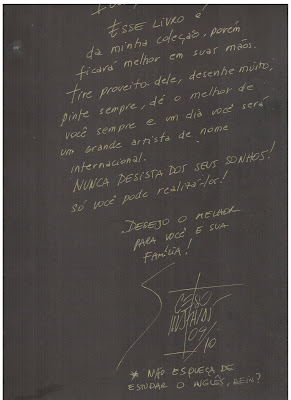 ESSE LIVRO É
da minha coleção, porém
ficará melhor em suas mãos.
Tire proveito dele, desenhe muito,
pinte sempre, dê o melhor de
você sempre e um dia você será
um grande artista de nome
internacional.
NUNCA DESISTA DOS SEUS SONHOS!
Só você pode realizá-los!
DESEJO O MELHOR
PARA VOCÊ E SUA
FAMÍLIA!
09/10
* NÃO ESQUEÇA DE
ESTUDAR O INGLÊS, BEIN?